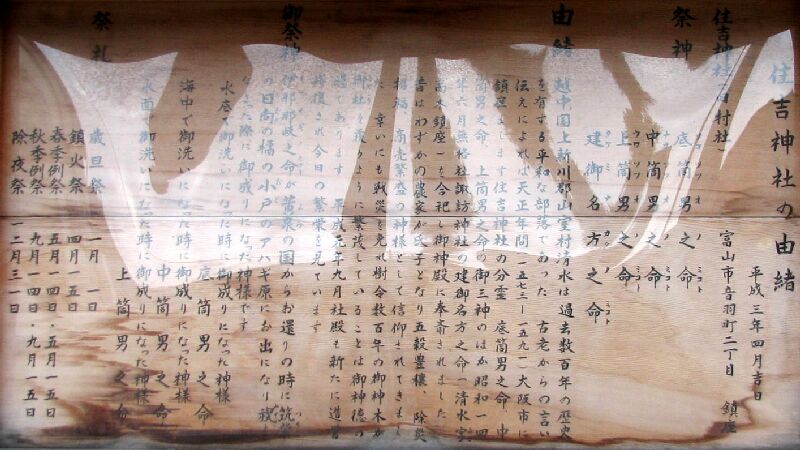 住吉神社の由緒
平成三年四月吉日
住吉神社 旧村社 富山市音羽町二丁目 鎮座
祭神 底筒男之命
中筒男之命
上筒男之命
建御名方之命
由緒 越中国上新川郡山室村清水は過去数百年の歴史
を有する平和な部落であった 古老からの言い
伝えによれば天正年間(一五七三―一五九一)大阪市に
鎮座まします住吉神社の分霊 底筒男之命、中
筒男之命、上筒男之命の御三神のほか昭和一四
年六月無格社諏訪神社の建御名方之命(清水室
高木鎮座)も合祀し御神殿に奉斎されました
昔はわずかの農家が氏子となり五穀豊穣、除災
招福、商売繁盛の神様として信仰されてきまし
た 幸いにも戦災を免れ樹令数百年の御神木が
御社を覆うように繁茂していることは御神徳の
過であります 平成元年九月社殿も新たに造営
修復され今日の繁栄を見ています
御祭神 伊邪那岐之命が黄泉の国からお還りの時に筑紫
の日向の橘の小戸のアハギ原にお出になり禊
なった際に御成りになった神様です
水底で御洗いになった時に御成りになった神様
底筒男之命
海中で御洗いになった時に御成りになった神様
中筒男之命
水面で御洗いになった時に御成りになった神様
上筒男之命
祭礼 歳旦祭 一月一日
鎮火祭 四月一五日
春季例祭 五月一四日・五月一五日
秋季例祭 九月一四日・九月一五日
除夜祭 一二月三一日